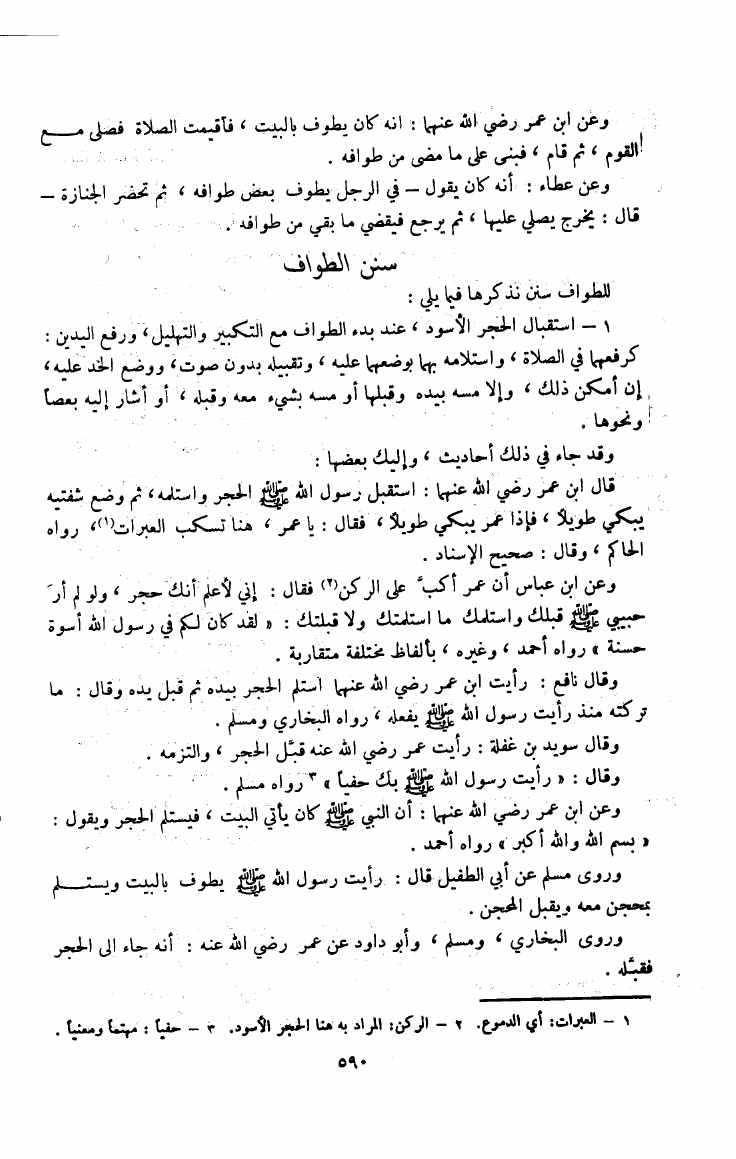 وعن ابن عمر رضي الله عنهما : انه كان يطوف بالبيت ، فأقيمت الصلاة فصلى مع
القوم ، ثم قام ، فبنى على ما مضى من طوافه .
وعن عطاء : أنه كان يقول – في الرجل يطوف بعض طوافه ، ثم تحضر الجنازة –
قال : يخرج يصلي عليها ، ثم يرجع فيقضي ما بقي من طوافه .
سنن الطواف
للطواف سنن نذكرها فيما يلي :
١ – استقبال الحجر الأسود ، عند بدء الطواف مع التكبير والتهليل، ورفع اليدين :
كرفعها في الصلاة ، واستلامه بهما بوضعهما عليه ، وتقبيله بدون صوت، ووضع الخد عليه،
إن أمكن ذلك ، وإلا مسه بيده وقبلها أو مسه بشيء معه وقبله ، أو أشار إليه بعصاً
ونحوها .
وقد جاء في ذلك أحاديث ، وإليك بعضها :
قال ابن عمر رضي الله عنهما : استقبل رسول الله ﷺ الحجر واستلمه، ثم وضع شفتيه
يبكي طويلاً ، فإذا عمر يبكي طويلاً ، فقال : يا عمر ، هنا تسكب العبرات(١)، رواه
الحاكم ، وقال : صحيح الإسناد .
وعن ابن عباس أن عمر أكبَّ على الركن(٢) فقال : إني لأعلم أنك حجر ، ولو لم أرَ
حبيبي ﷺ قبلك واستلمك ما استلمتك ولا قبلتك : « لقد كان لكم في رسول الله أسوة
حسنة » رواه أحمد ، وغيره ، بألفاظ مختلفة متقاربة .
وقال نافع : رأيت ابن عمر رضي الله عنهما استلم الحجر بيده ثم قبل يده وقال : ما
تركته منذ رأيت رسول الله ﷺ يفعله ، رواه البخاري ومسلم .
وقال سويد بن غفلة : رأيت عمر رضي الله عنه قبَّل الحجر ، والتزمه .
وقال : « رأيت رسول الله ﷺ بك حفياً » ٣ رواه مسلم .
وعن ابن عمر رضي الله عنهما : أن النبي ﷺ كان يأتي البيت ، فيستلم الحجر ويقول :
« بسم الله والله أكبر » رواه أحمد .
وروى مسلم عن أبي الطفيل قال : رأيت رسول الله ﷺ يطوف بالبيت ويستلم
بمحجن معه ويقبل المحجن .
وروى البخاري ، ومسلم ، وأبو داود عن عمر رضي الله عنه : أنه جاء الى الحجر
فقبَّله .
١ – العبرات: أي الدموع. ٢ – الركن: المراد به هنا الحجر الأسود. ٣ – حفياً : مهتماً ومعنياً .
٥٩٠